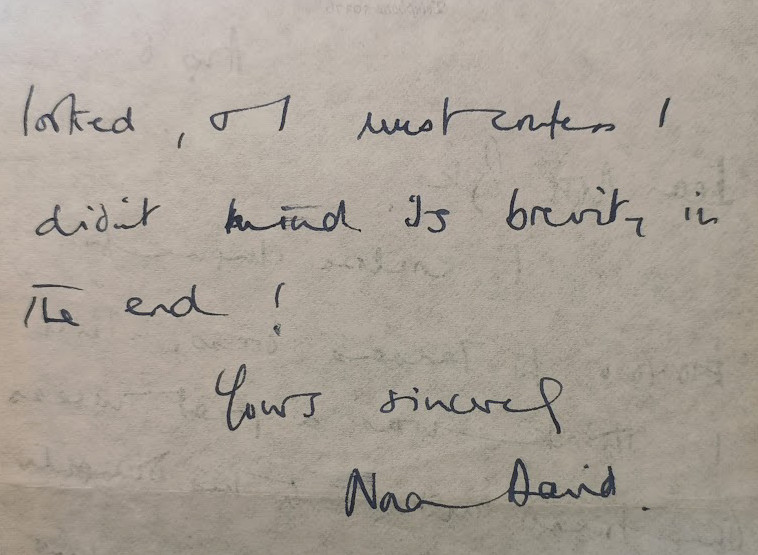 looked, & I must confess I
didn't mind its brevity in
the end!
Yours sincerely
Nora David.